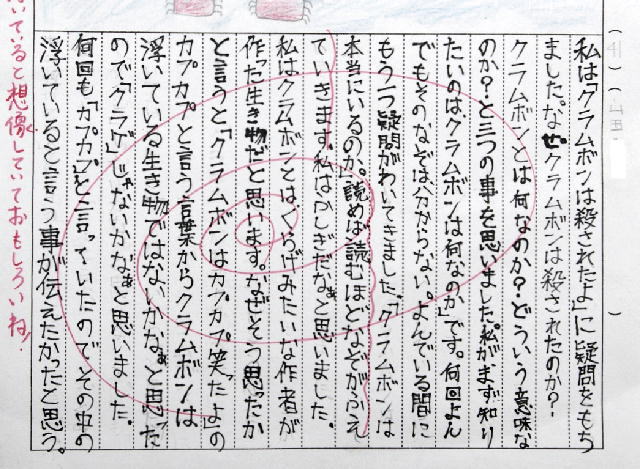 私は「クラムボンは殺されたよ」に疑問をもち
ました。なぜクラムボンは殺されたのか？
クラムボンとは何なのか？どういう意味な
のか？と三つの事を思いました。私がまず知り
たいのは、クラムボンは何なのか」です。何回よん
でもそのなぞは分からない。よんでいる間に
もう一つ疑問がわいてきました。「クラムボンは
本当にいるのか。」読めば読むほどなぞがふえ
ていきます。私はふしぎだなぁと思いました。
私はクラムボンとは、くらげみたいな作者が
作った生き物だと思います。なぜそう思ったか
と言うと「クラムボンはカプカプ笑ったよ」の
カプカプと言う言葉からクラムボンは
浮いている生き物ではないかな。ぁと思った
ので「クラゲ」じゃないかなぁと思いました。
何回も「カプカプ」と言っていたので、その中の
浮いていると言う事が伝えたかったと思う。
いていると想像していておもしろいね！